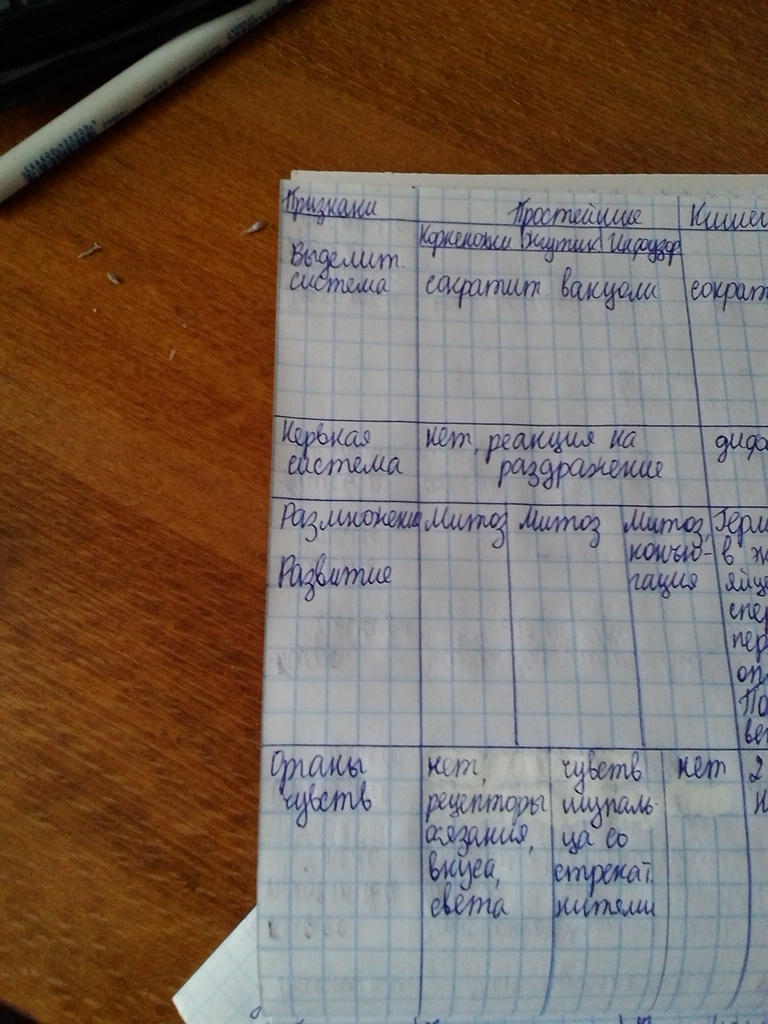 Признаки Простейшие Кишеч
Корненожки Жгутик Инфузор
Выделит.
система сократит. вакуоли сократ
Нервная нет, реакция на дифф
система раздражение
Размножение Митоз Митоз Митоз, Герм
конъю- в ж
Развитие гация яйце
спер
пер
оп
По
вет
Органы нет, чувств нет 2
чувств рецепторы щупаль- н
осязания, ца со
вкуса, стрекат.
света нитями